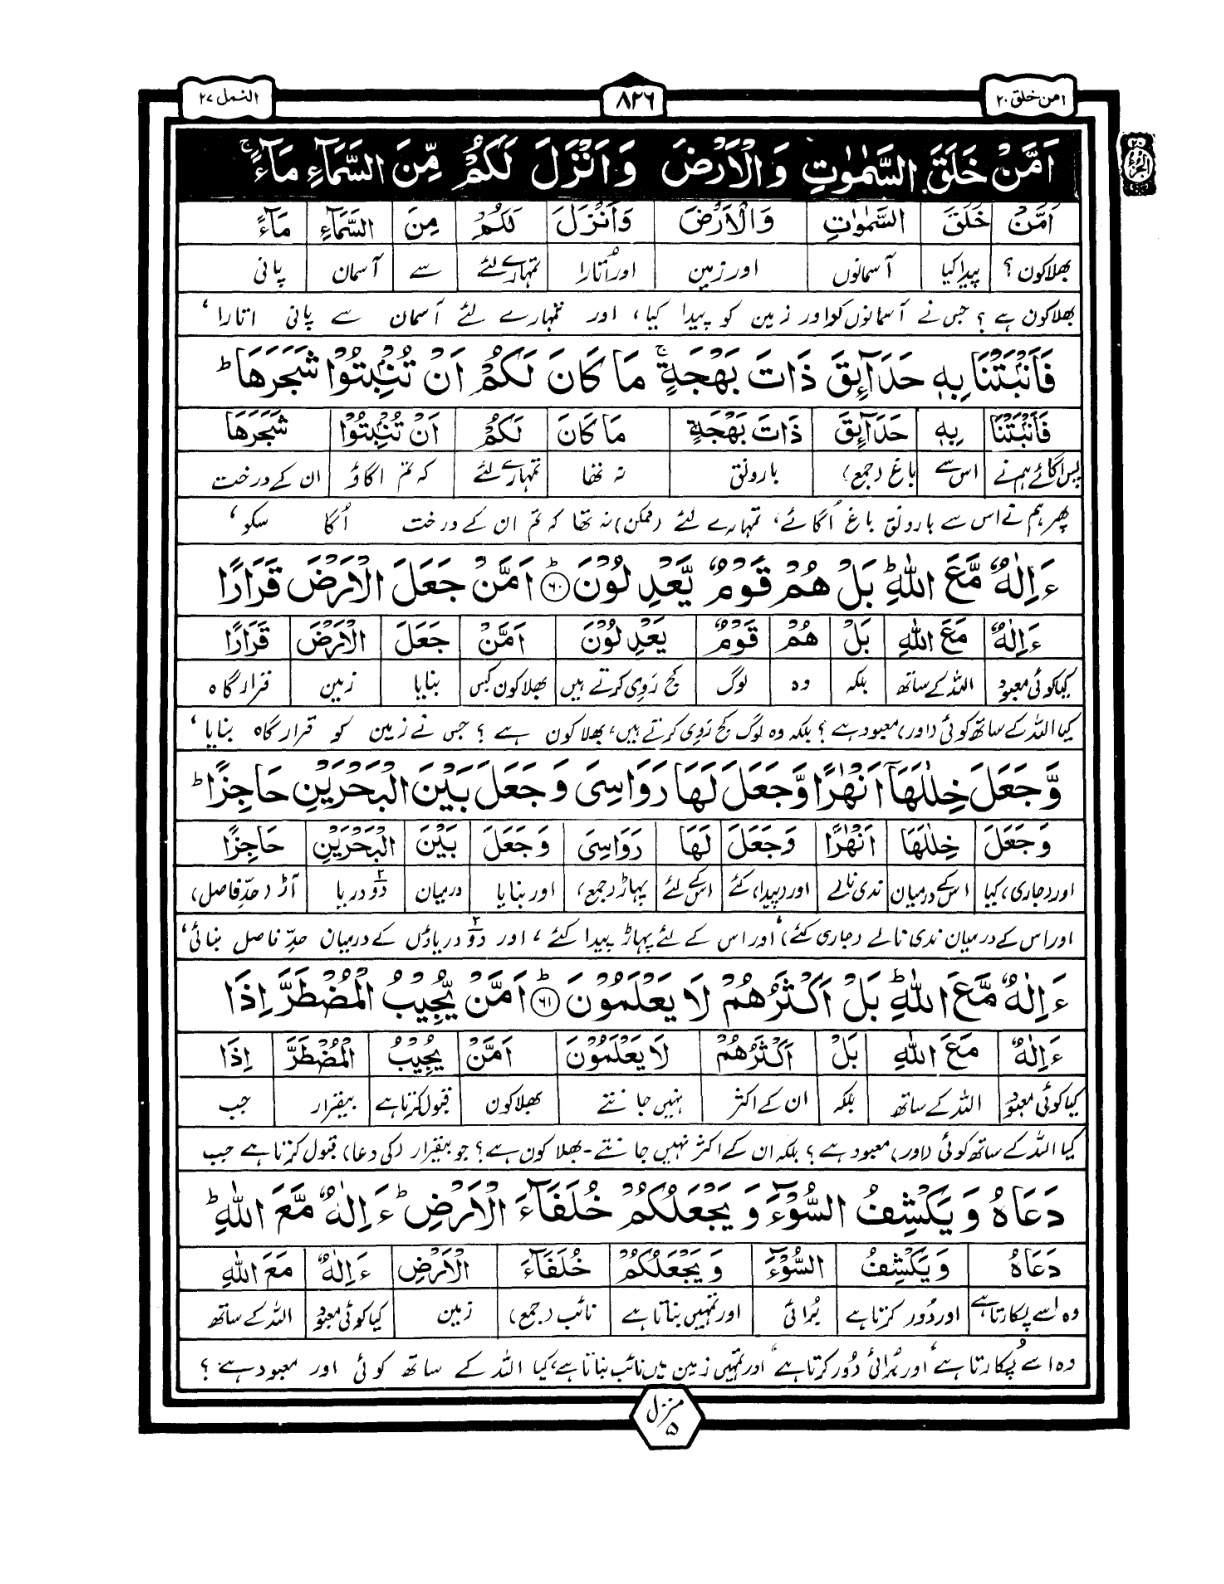 امن خلق ۲۰
۸۲۶
النمل ۲۷
اَمَّنْ خَلَقَ السَّمٰوٰتِ وَالْاَرْضَ وَاَنْزَلَ لَكُمْ مِّنَ السَّمَآءِ مَآءً ۚ
اَمَّنْ خَلَقَ السَّمٰوٰتِ وَالْاَرْضَ وَاَنْزَلَ لَكُمْ مِنَ السَّمَآءِ مَآءً
بھلا کون ؟ پیدا کیا آسمانوں اور زمین اور اُتارا تمہارے لئے سے آسمان پانی
بھلا کون ہے ؟ جس نے آسمانوں کو اور زمین کو پیدا کیا، اور تمہارے لئے آسمان سے پانی اتارا،
فَاَنْۢبَتْنَا بِهٖ حَدَآئِقَ ذَاتَ بَهْجَةٍ ۚ مَا كَانَ لَكُمْ اَنْ تُنْۢبِتُوْا شَجَرَهَا ؕ
فَاَنْۢبَتْنَا بِهٖ حَدَآئِقَ ذَاتَ بَهْجَةٍ مَا كَانَ لَكُمْ اَنْ تُنْۢبِتُوْا شَجَرَهَا
پس اگائے ہم نے اس سے باغ (جمع) بارونق نہ تھا تمہارے لئے کہ تم اگاؤ ان کے درخت
پھر ہم نے اس سے بارونق باغ اُگائے، تمہارے لئے (ممکن) نہ تھا کہ تم ان کے درخت اُگا سکو،
ءَاِلٰهٌ مَّعَ اللّٰهِ ؕ بَلْ هُمْ قَوْمٌ يَّعْدِلُوْنَ ؕ ۶۰ اَمَّنْ جَعَلَ الْاَرْضَ قَرَارًا
ءَاِلٰهٌ مَعَ اللّٰهِ بَلْ هُمْ قَوْمٌ يَعْدِلُوْنَ اَمَّنْ جَعَلَ الْاَرْضَ قَرَارًا
کیا کوئی معبود اللہ کے ساتھ بلکہ وہ لوگ کج رَوی کرتے ہیں بھلا کون کس بنایا زمین قرار گاہ
کیا اللہ کے ساتھ کوئی (اور) معبود ہے ؟ بلکہ وہ لوگ کج رَوی کرتے ہیں، بھلا کون ہے ؟ جس نے زمین کو قرار گاہ بنایا،
وَّجَعَلَ خِلٰلَهَآ اَنْهٰرًا وَّجَعَلَ لَهَا رَوَاسِىَ وَجَعَلَ بَيْنَ الْبَحْرَيْنِ حَاجِزًا ؕ
وَجَعَلَ خِلٰلَهَا اَنْهٰرًا وَجَعَلَ لَهَا رَوَاسِىَ وَجَعَلَ بَيْنَ الْبَحْرَيْنِ حَاجِزًا
اور (جاری) کیا اس کے درمیان ندی نالے اور (پیدا) کئے اس کے لئے پہاڑ (جمع) اور بنایا درمیان دو دریا آڑ (حدِّ فاصل)
اور اس کے درمیان ندی نالے (جاری کئے) اور اس کے لئے پہاڑ پیدا کئے، اور دو دریاؤں کے درمیان حدِّ فاصل بنائی،
ءَاِلٰهٌ مَّعَ اللّٰهِ ؕ بَلْ اَكْثَرُهُمْ لَا يَعْلَمُوْنَ ؕ ۶۱ اَمَّنْ يُّجِيْبُ الْمُضْطَرَّ اِذَا
ءَاِلٰهٌ مَعَ اللّٰهِ بَلْ اَكْثَرُهُمْ لَا يَعْلَمُوْنَ اَمَّنْ يُجِيْبُ الْمُضْطَرَّ اِذَا
کیا کوئی معبود اللہ کے ساتھ بلکہ ان کے اکثر نہیں جانتے بھلا کون قبول کرتا ہے بیقرار جب
کیا اللہ کے ساتھ کوئی (اور) معبود ہے ؟ بلکہ ان کے اکثر نہیں جانتے۔ بھلا کون ہے ؟ جو بیقرار (کی دعا) قبول کرتا ہے جب
دَعَاهُ وَيَكْشِفُ السُّوْٓءَ وَيَجْعَلُكُمْ خُلَفَآءَ الْاَرْضِ ؕ ءَاِلٰهٌ مَّعَ اللّٰهِ ؕ
دَعَاهُ وَيَكْشِفُ السُّوْٓءَ وَيَجْعَلُكُمْ خُلَفَآءَ الْاَرْضِ ءَاِلٰهٌ مَعَ اللّٰهِ
وہ اسے پکارتا ہے اور دُور کرتا ہے بُرائی اور تمہیں بناتا ہے نائب (جمع) زمین کیا کوئی معبود اللہ کے ساتھ
وہ اسے پکارتا ہے، اور بُرائی دُور کرتا ہے، اور تمہیں زمین میں نائب بناتا ہے، کیا اللہ کے ساتھ کوئی اور معبود ہے ؟
منزل ۵